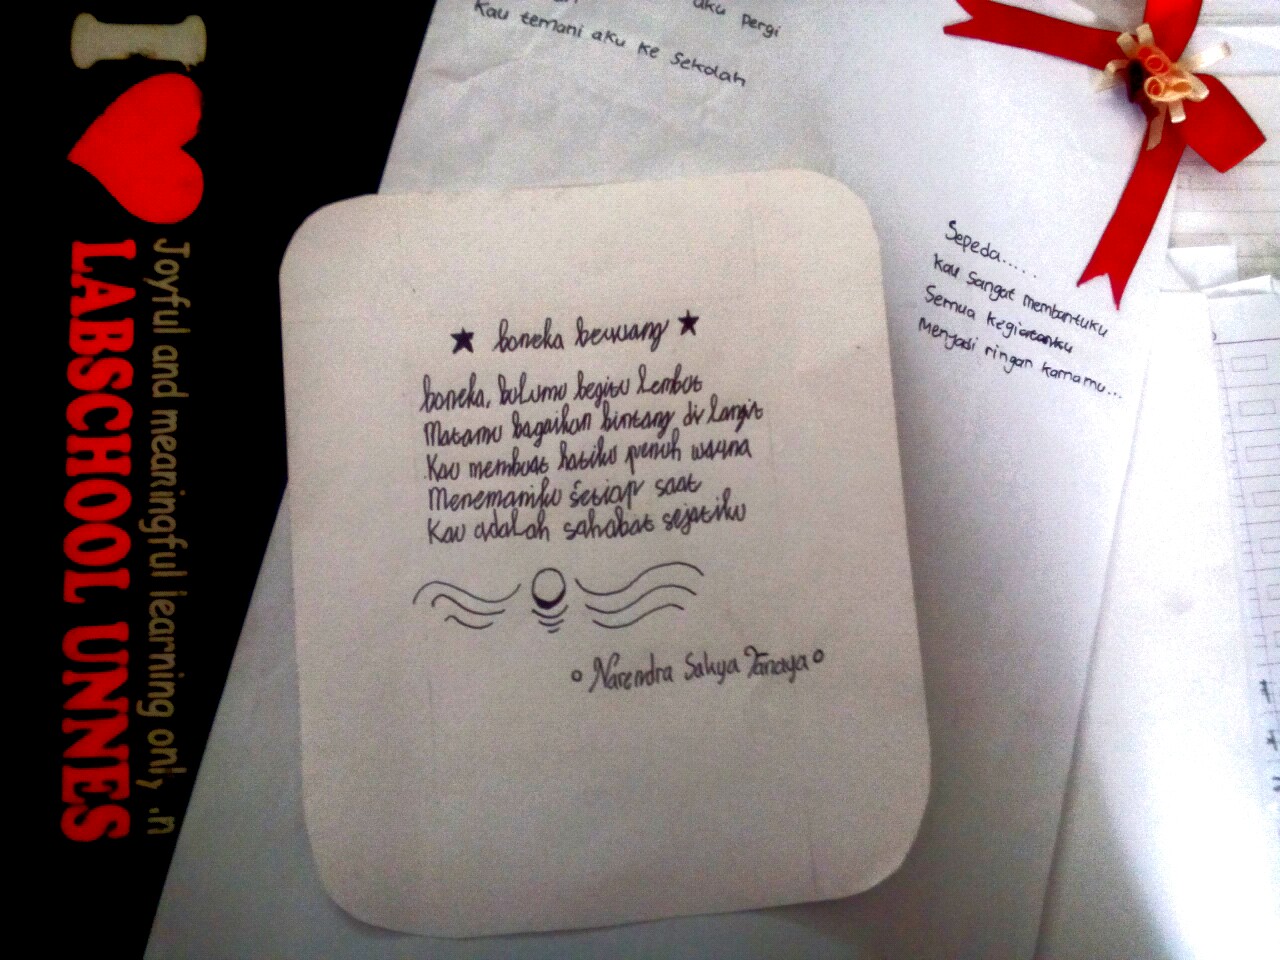 I
LABSCHOOL UNNES
Joyful and meaningful learning on
aku pergi
Kau temani aku ke Sekolah
boneka beruang
boneka, bulumu begitu lembut
Matamu bagaikan bintang di langit
Kau membuat hatiku penuh warna
Menemaniku setiap saat
Kau adalah sahabat sejatiku
Narendra Satya Tanaya
Sepeda.....
Kau Sangat membantuku
Semua Kegiatanku
Menjadi ringan karnamu...